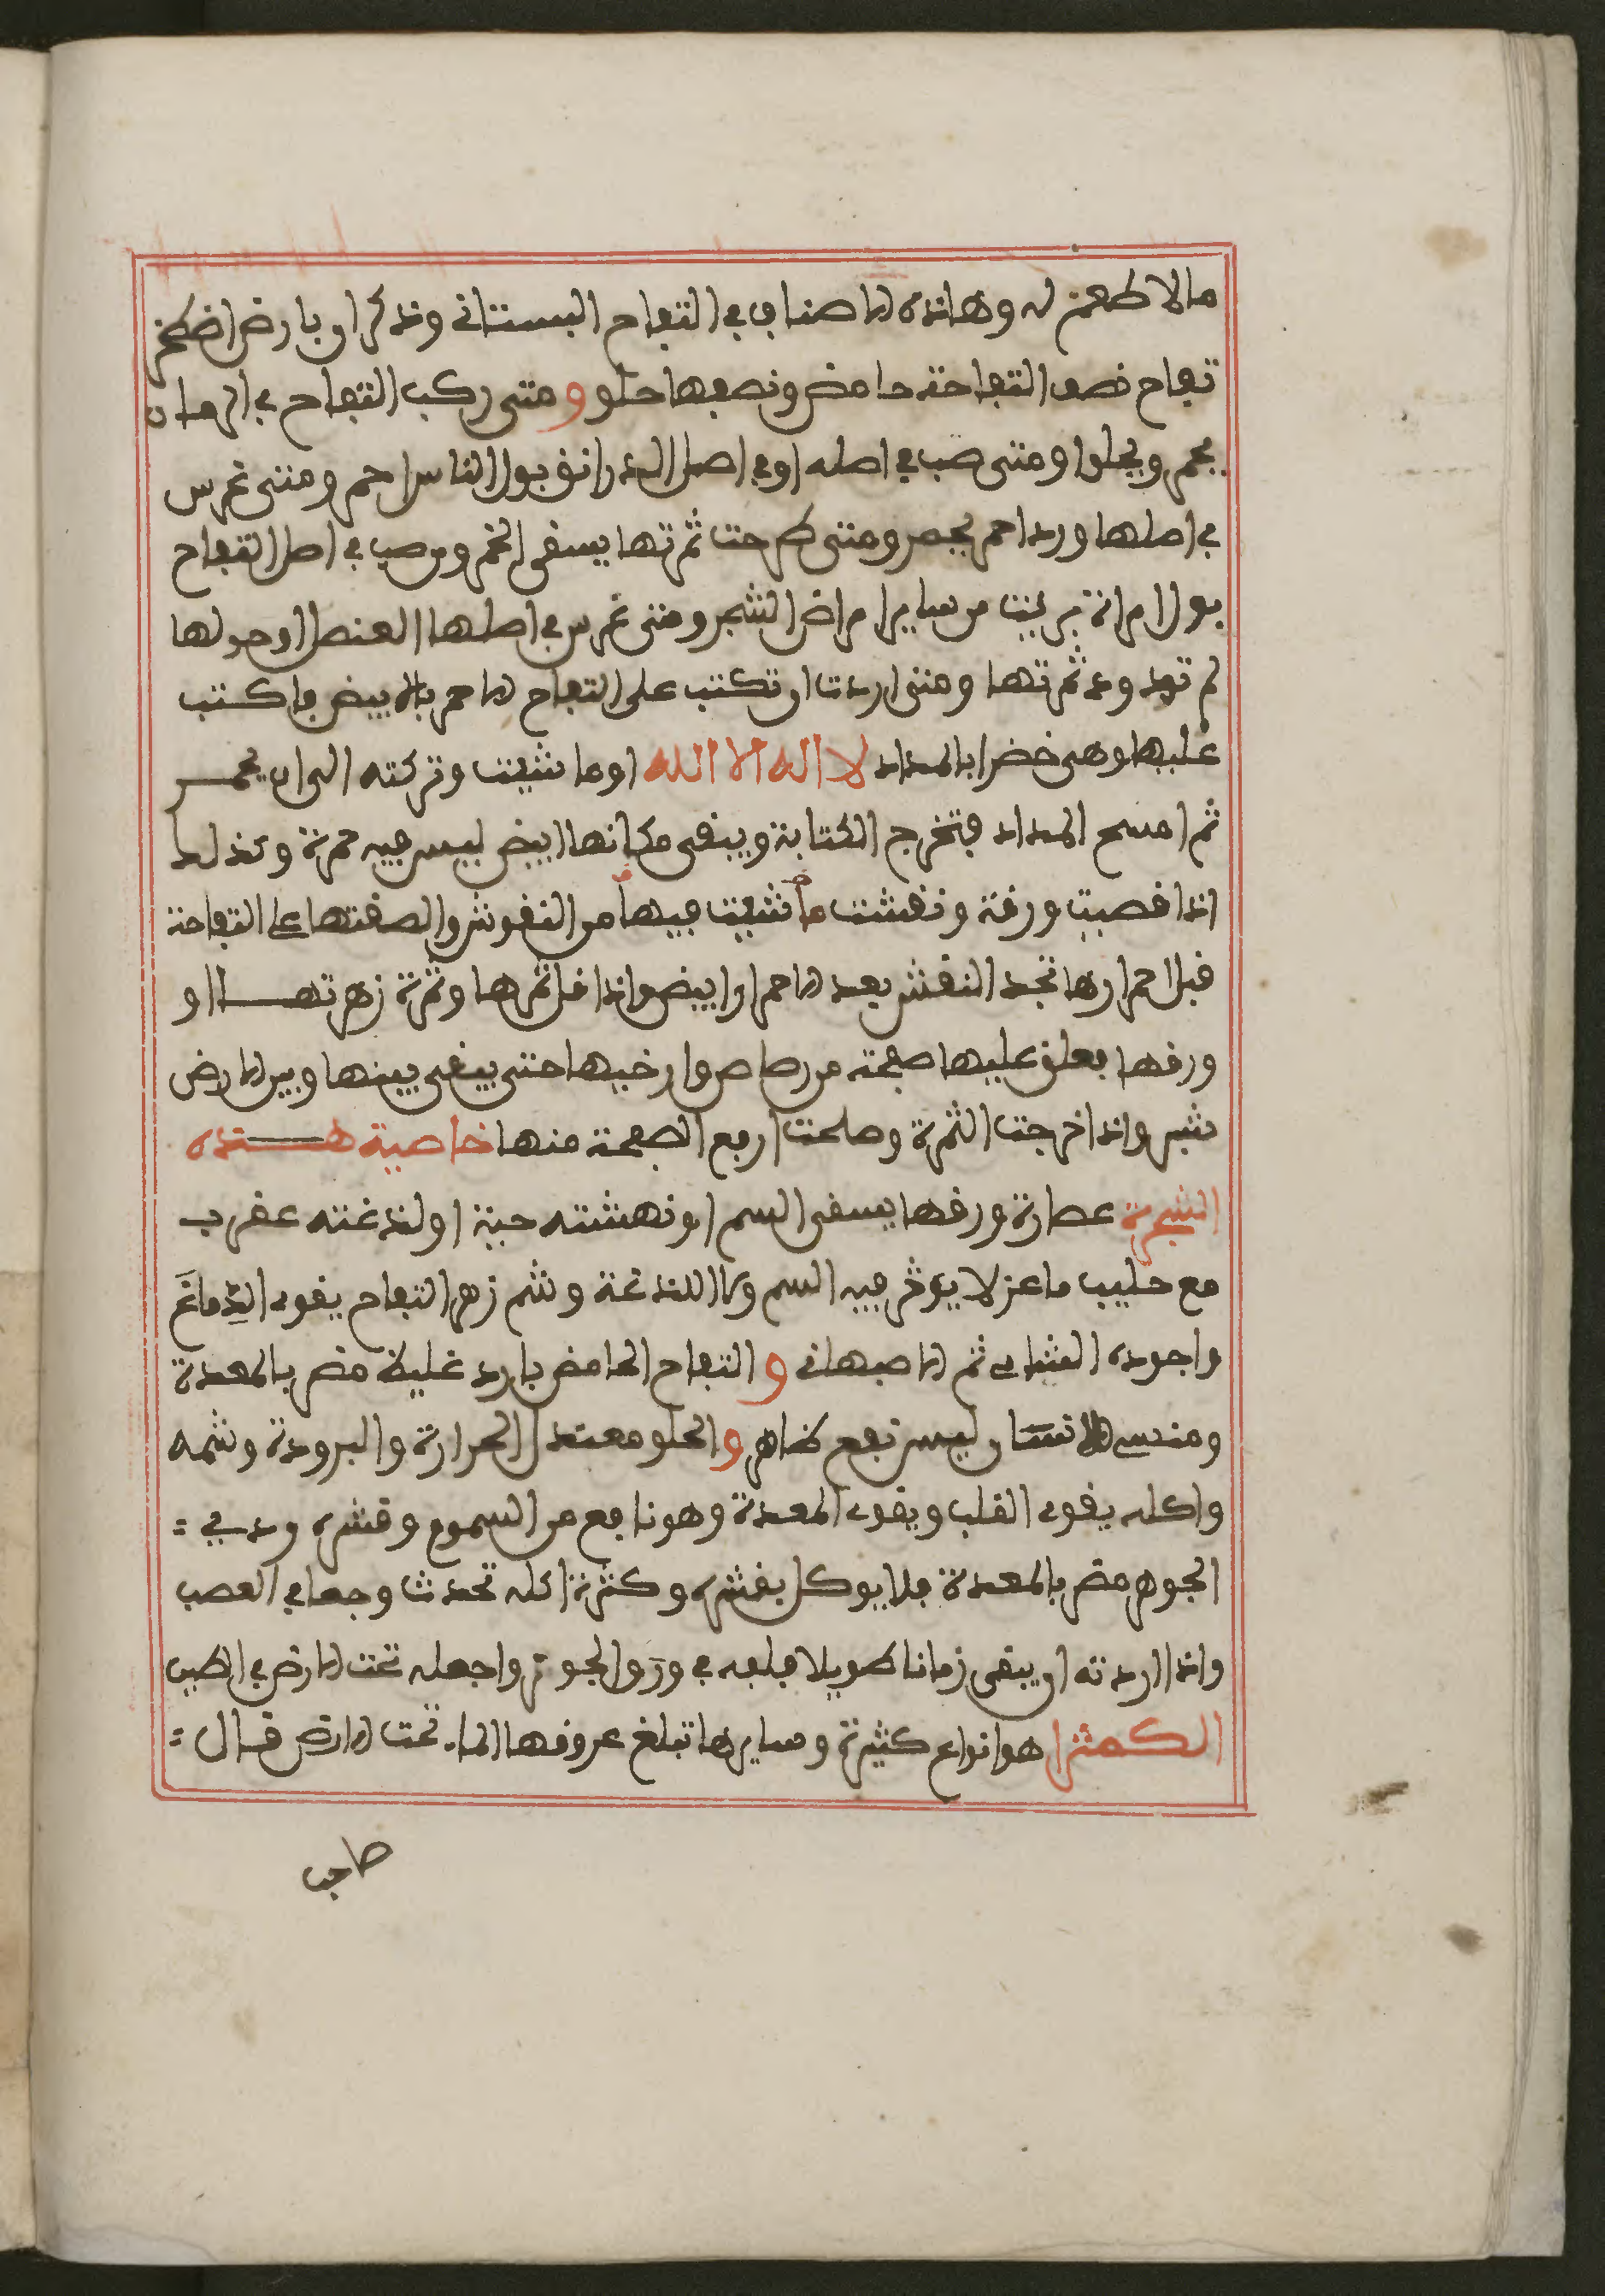 ما لا طعم له وهاذه الاصناف في التفاح البستاني وذكر ان بارض اصطخر
تفاح نصف التفاحة حامض ونصفها حلو ومتى ركب التفاح في الرمان
يحمر ويحلوا ومتى صب في اصله او في اصل الدراق بول الناس احمر ومتى غرس
في اصلها ورد احمر يحمر ومتى طرحت ثمرتها يسقى الخمر ومن صب في اصل التفاح
بول امراة بريت من ساير امراض الشجر ومتى غرس في اصلها العنصل او حولها
لم تودود ثمرتها ومتى اردت ان تكتب على التفاح الاحمر بالابيض فاكتب
عليها وهي خضرا بالمداد لا اله الا الله او ما شيت وتركته الى ان يحمر
ثم امسح المداد فتخرج الكتابة ويبقى مكانها ابيض ليس فيه حمرة وكذلك
اذا قصيت ورقة ونقشت ما شيت فيها من النقوش والصقتها على التفاحة
قبل احمرارها تجد النقش بعد الاحمرار ابيض واذا قل ثمرها وثمرة زهرتها او
ورقها بعلق عليها صفحة من رصاص وارخيها حتى يبقى بينها وبين الارض
شبر واذا خرجت الثمرة وصلحت ارفع الصفحة منها خاصية هذه
الشجرة عصارة ورقها يسقى السم او نهشته حية او لذغته عقرب
مع حليب ماعز لا يؤثر فيه السم ولا اللذغة وشم زهر التفاح يقوي الدِّماغَ
واجوده الشامي ثم الاصبهاني و التفاح الحامض بارد غليظ مضر بالمعدة
ومنسي الانسان ليس نفع ظاهر والحلو معتدل الحرارة والبرودة وشمه
واكله يقوي القلب ويقوي المعدة وهو نافع من السموم وقشره ردي
الجوهر مضر بالمعدة فلا يوكل بقشره وكثرة اكله تحدث وجعا في العصب
واذا اردته ان يبقى زمانا طويلا فلفه في ورق الجوز واجعله تحت الارض في الطين
الكمثرا هو انواع كثيرة وسايرها تبلغ عروقها الماء تحت الارض قال
صاحب